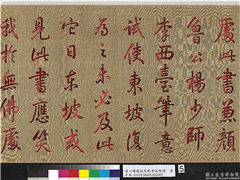 處此書兼顏
魯公楊少師
李西臺筆意
試使東坡復
為之未必及此
它日東坡或
見此書應笑
我於無佛處
5